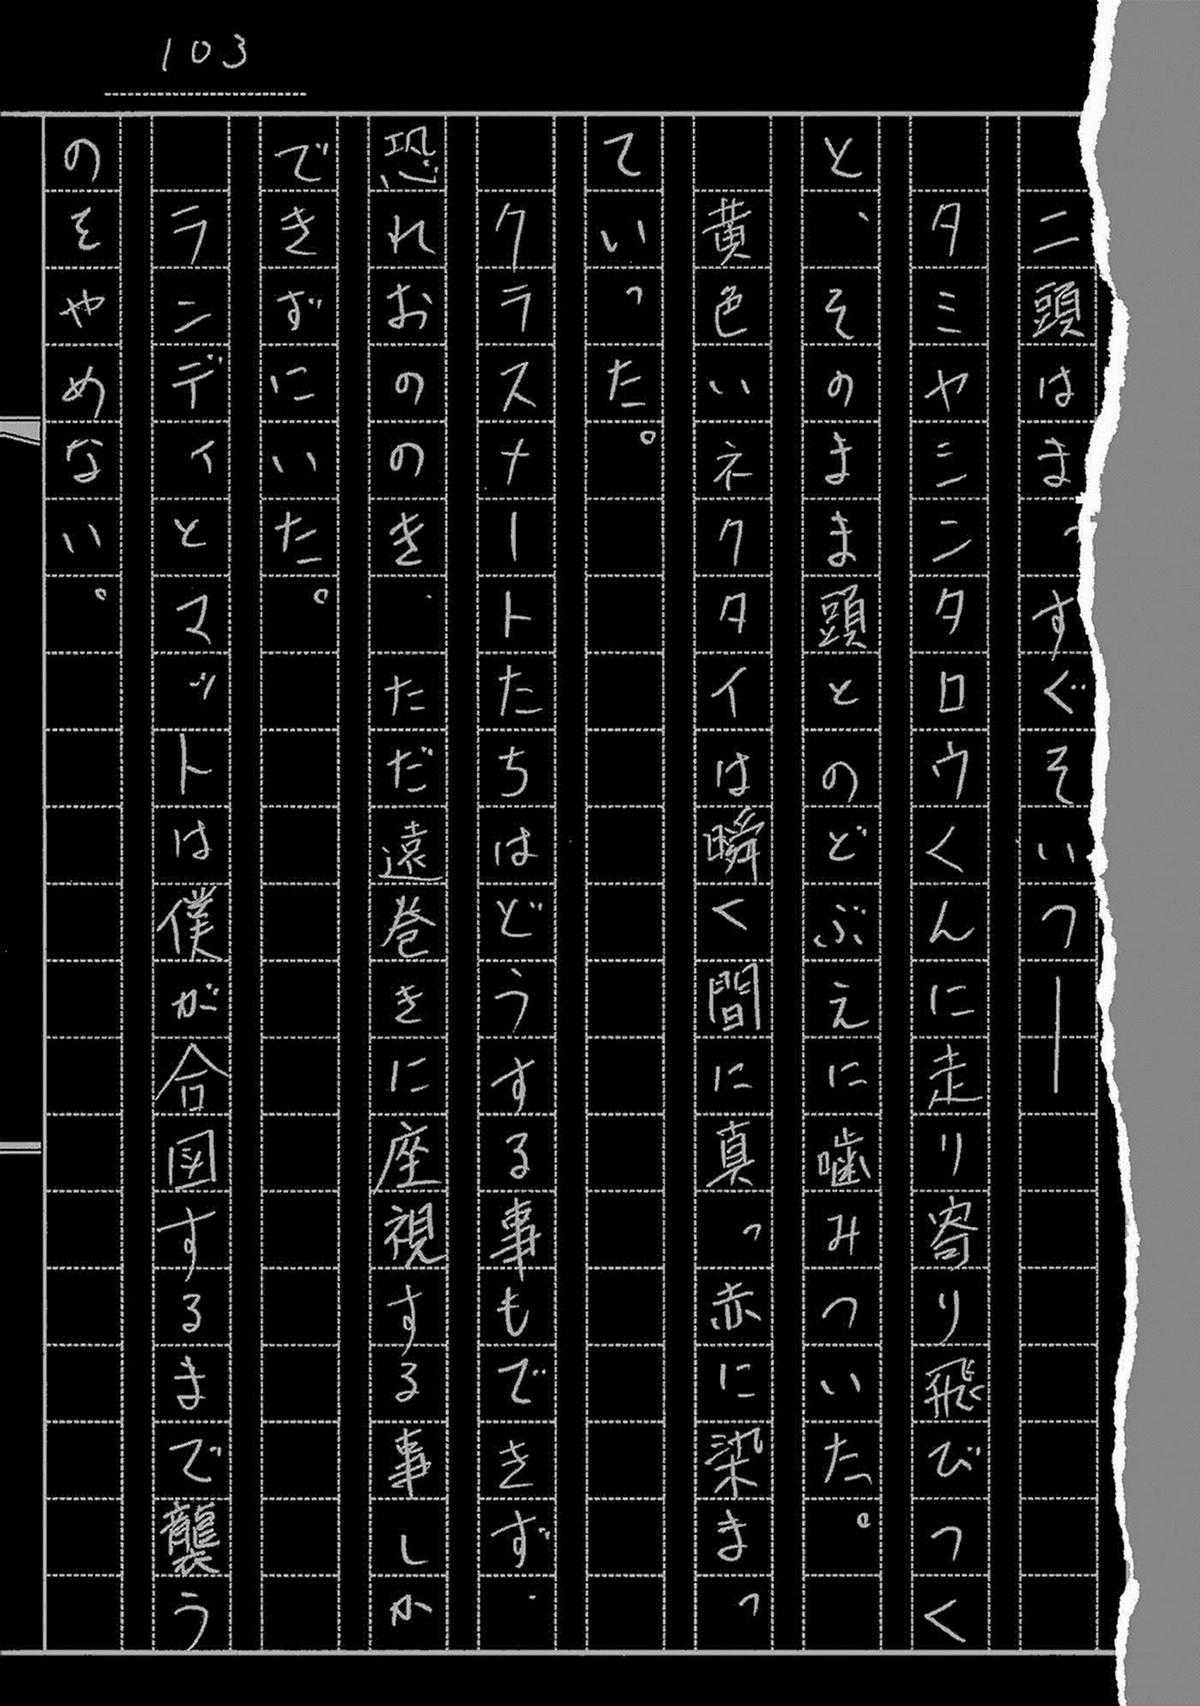 103
二頭はまっすぐそいつ――
タミヤシンタロウくんに走り寄り飛びつく
と、そのまま頭とのどぶえに噛みついた。
黄色いネクタイは瞬く間に真っ赤に染まっ
ていった。
クラスメートたちはどうする事もできず、
恐れおののき、ただ遠巻きに座視する事しか
できずにいた。
ランディとマットは僕が合図するまで襲う
のをやめない。